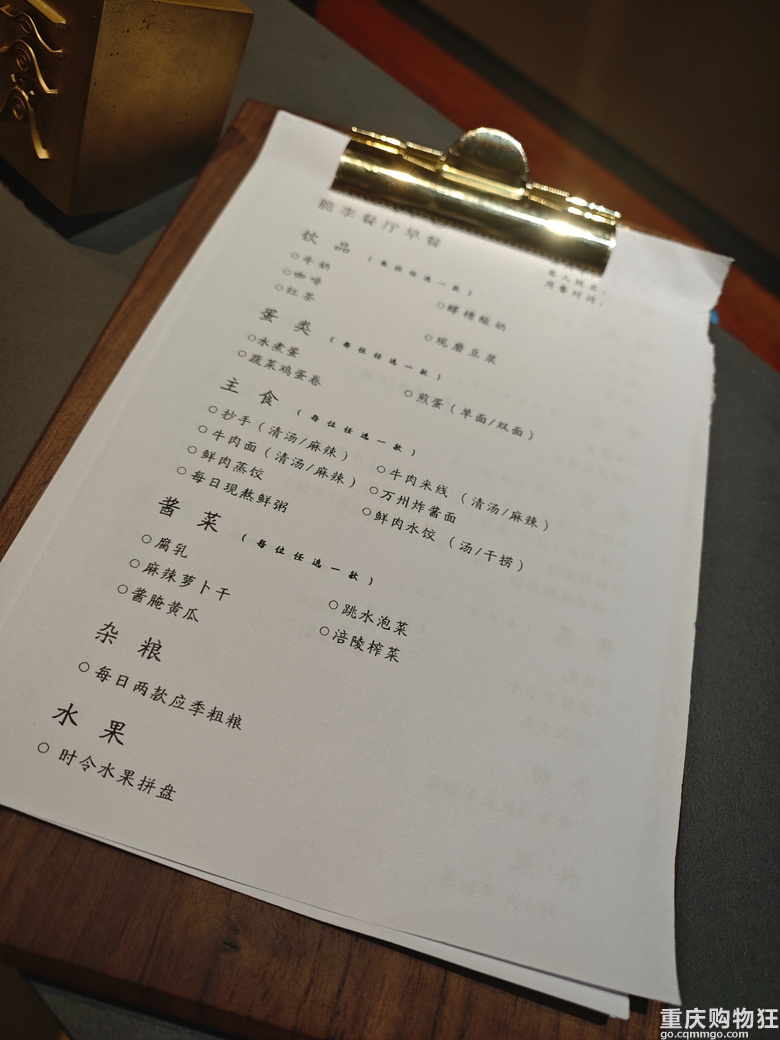 脆李餐厅早餐
客人姓名：
用餐时间：
饮品（每位任选一款）
○牛奶 ○醪糟酸奶
○咖啡
○红茶 ○现磨豆浆
蛋类（每位任选一款）
○水煮蛋
○蔬菜鸡蛋卷 ○煎蛋（单面/双面）
主食（每位任选一款）
○抄手（清汤/麻辣） ○牛肉米线（清汤/麻辣）
○牛肉面（清汤/麻辣） ○万州炸酱面
○鲜肉蒸饺 ○鲜肉水饺（汤/干捞）
○每日现熬鲜粥
酱菜（每位任选一款）
○腐乳 ○跳水泡菜
○麻辣萝卜干 ○涪陵榨菜
○酱腌黄瓜
杂粮
○每日两款应季粗粮
水果
○时令水果拼盘
重庆购物狂
go.cqmmgo.com